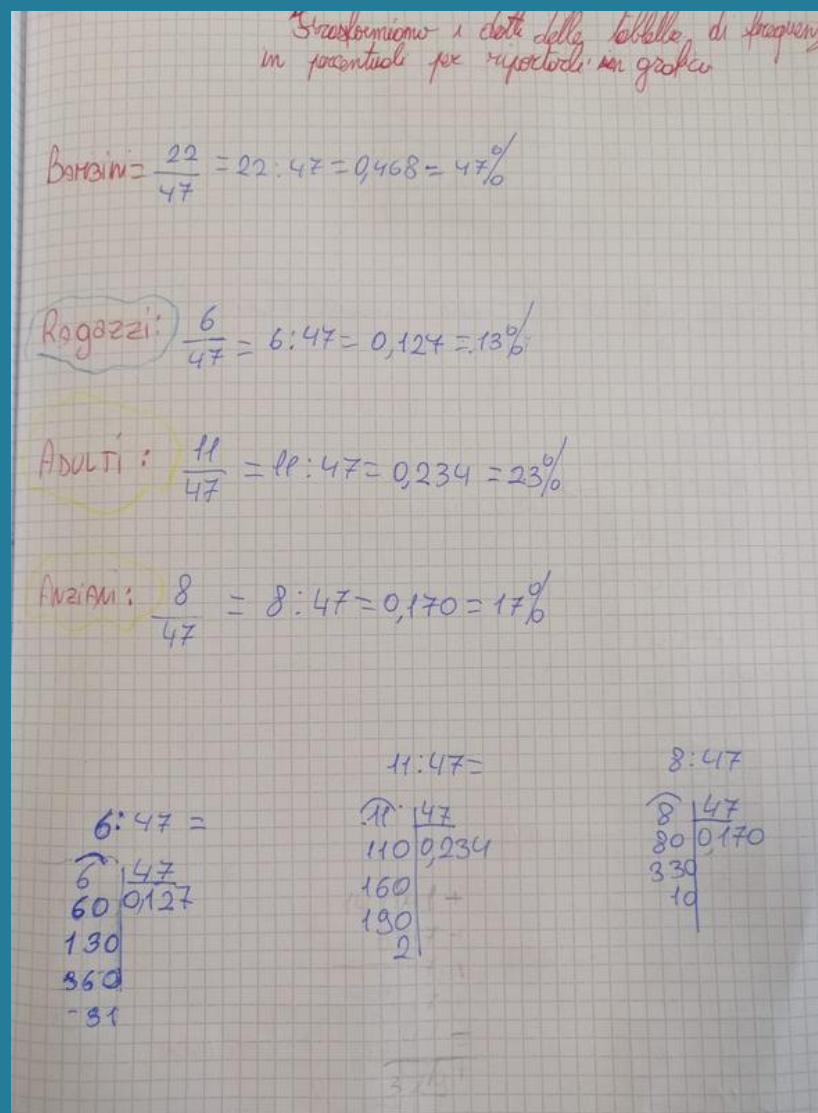 Trasformiamo i dati della tabella di frequenz
in percentuali per riportarli in grafico
BAMBINI = 22/47 = 22:47 = 0,468 = 47%
Ragazzi: 6/47 = 6:47 = 0,127 = 13%
ADULTI: 11/47 = 11:47 = 0,234 = 23%
ANZIANI: 8/47 = 8:47 = 0,170 = 17%
6:47 =
6 | 47
60 | 0,127
130
360
31
11:47=
11 | 47
110 | 0,234
160
190
2
8:47
8 | 47
80 | 0,170
330
10